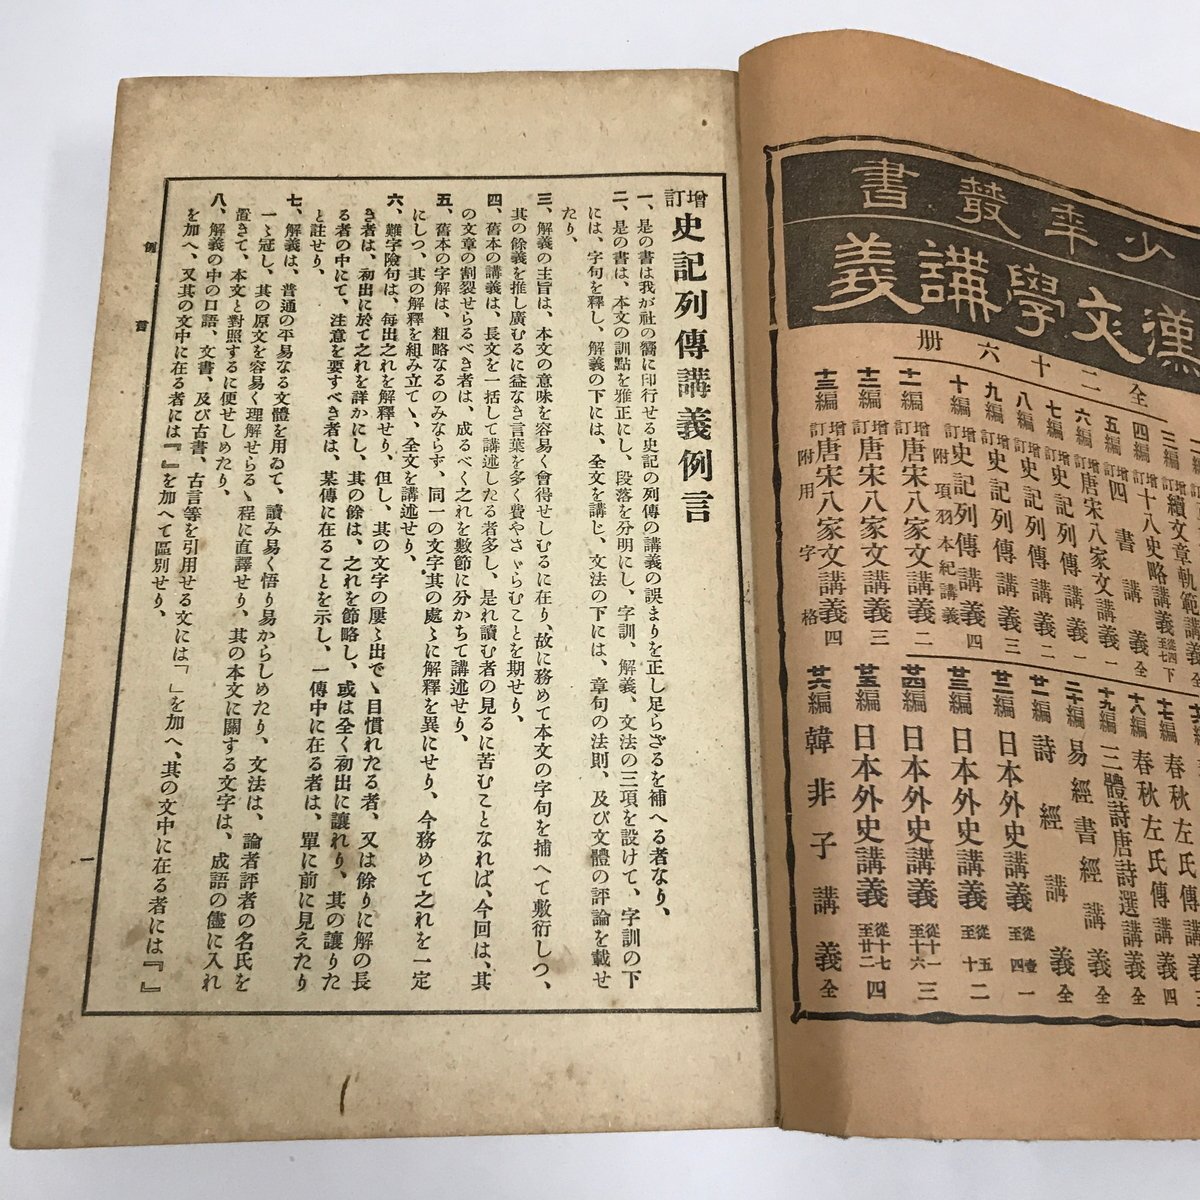 少年叢書
漢文學講義
全二十六册
三編 增訂 續文章軌範講義 全
四編 增訂 十八史略講義 從四至七 下
五編 增訂 四書講義 全
六編 增訂 唐宋八家文講義 一
七編 增訂 史記列傳講義 一
八編 增訂 史記列傳講義 二
九編 增訂 史記列傳講義 三
十編 增訂 史記列傳講義 四 附項羽本紀講義
十一編 增訂 唐宋八家文講義 二
十二編 增訂 唐宋八家文講義 三
十三編 增訂 唐宋八家文講義 四 附用字格
春秋左氏傳講義
十七編 春秋左氏傳講義 四
十八編 三體詩唐詩選講義 全
十九編 易經書經講義 全
二十編 詩經講義 全
廿一編 日本外史講義 從壹至四 一
廿二編 日本外史講義 從五至十 二
廿三編 日本外史講義 從十一至十六 三
廿四編 日本外史講義 從十七至廿二 四
廿五編
廿六編 韓非子講義 全
增訂 史記列傳講義例言
一、是の書は我が社の嚮に印行せる史記の列傳の講義の誤まりを正し足らざるを補へる者なり、
二、是の書は、本文の訓點を雅正にし、段落を分明にし、字訓、解義、文法の三項を設けて、字訓の下
には、字句を釋し、解義の下には、全文を講じ、文法の下には、章句の法則、及び文體の評論を載せ
たり、
三、解義の主旨は、本文の意味を容易く會得せしむるに在り、故に務めて本文の字句を捕へて敷衍しつゝ、
其の餘義を推し廣むるに益なき言葉を多く費やさゞらむことを期せり、
四、舊本の講義は、長文を一括して講述したる者多し、是れ讀む者の見るに苦むことなれば、今回は、其
の文章の割裂せらるべき者は、成るべく之れを數節に分かちて講述せり、
五、舊本の字解は、粗略なるのみならず、同一の文字其の處〻に解釋を異にせり、今務めて之れを一定
にしつゝ、其の解釋を組み立てゝ、全文を講述せり、
六、難字險句は、每出之れを解釋せり、但し、其の文字の屢〻出でゝ目慣れたる者、又は餘りに解の長
き者は、初出に於て之れを詳かにし、其の餘は、之れを節略し、或は全く初出に讓れり、其の讓りた
る者の中にて、注意を要すべき者は、某傳に在ることを示し、一傳中に在る者は、單に前に見えたり
と註せり、
七、解義は、普通の平易なる文體を用ゐて、讀み易く悟り易からしめたり、文法は、論者評者の名氏を
一〻冠し、其の原文を容易く理解せらるゝ程に直譯せり、其の本文に關する文字は、成語の儘に入れ
置きて、本文と對照するに便せしめたり、
八、解義の中の口語、文書、及び古書、古言等を引用せる文には「」を加へ、其の文中に在る者には『』
を加へ、又其の文中に在る者には『』を加へて區別せり、
例言
一